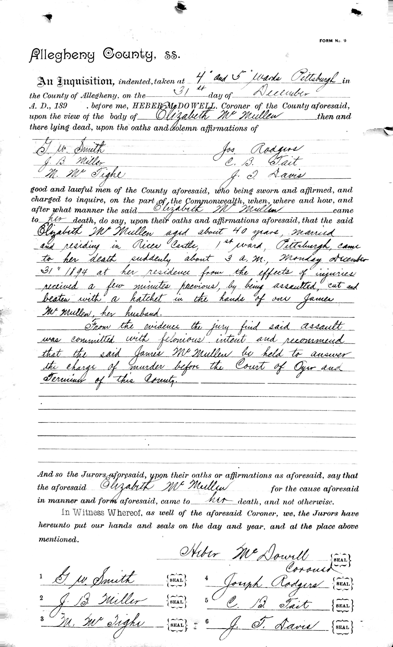 FORM No. 9
Allegheny County, ss.
An Inquisition, indented, taken at 4th and 5th Wards Pittsburgh in
the County of Allegheny, on the 31st day of December
A. D., 189 , before me, HEBER McDOWELL, Coroner of the County aforesaid,
upon the view of the body of Elizabeth Mc Mullen then and
there lying dead, upon the oaths and solemn affirmations of
G. W. Smith Jos Rodgers
J B Miller C. B. Tait
M. Mc Tighe J. T Davis
good and lawful men of the County aforesaid, who being sworn and affirmed, and
charged to inquire, on the part of the Commonwealth, when, where and how, and
after what manner the said Elizabeth Mc Mullen came
to her death, do say, upon their oaths and affirmations aforesaid, that the said
Elizabeth Mc Mullen aged about 40 years, married
and residing in Rices Castle, 1st Ward, Pittsburgh, came
to her death suddenly about 3 a.m., Monday December
31st 1894 at her residence from the effects of injuries
received a few minutes previous, by being assaulted, cut and
beaten with a hatchet in the hands of one James
Mc Mullen, her husband.
From the evidence the jury find said assault
was committed with felonious intent and recommend
that the said James Mc Mullen be held to answer
the charge of murder before the Court of Oyer and
Terminer of this County.
And so the Jurors aforesaid, upon their oaths or affirmations as aforesaid, say that
the aforesaid Elizabeth Mc Mullen for the cause aforesaid
in manner and form aforesaid, came to her death, and not otherwise.
In Witness Whereof, as well of the aforesaid Coroner, we, the Jurors have
hereunto put our hands and seals on the day and year, and at the place above
mentioned.
Heber McDowell SEAL
Coroner
1 G. W. Smith SEAL 4 Joseph Rodgers SEAL
2 J. B Miller SEAL 5 C. B Tait SEAL
3 M. Mc Tighe SEAL 6 J. T. Davis SEAL